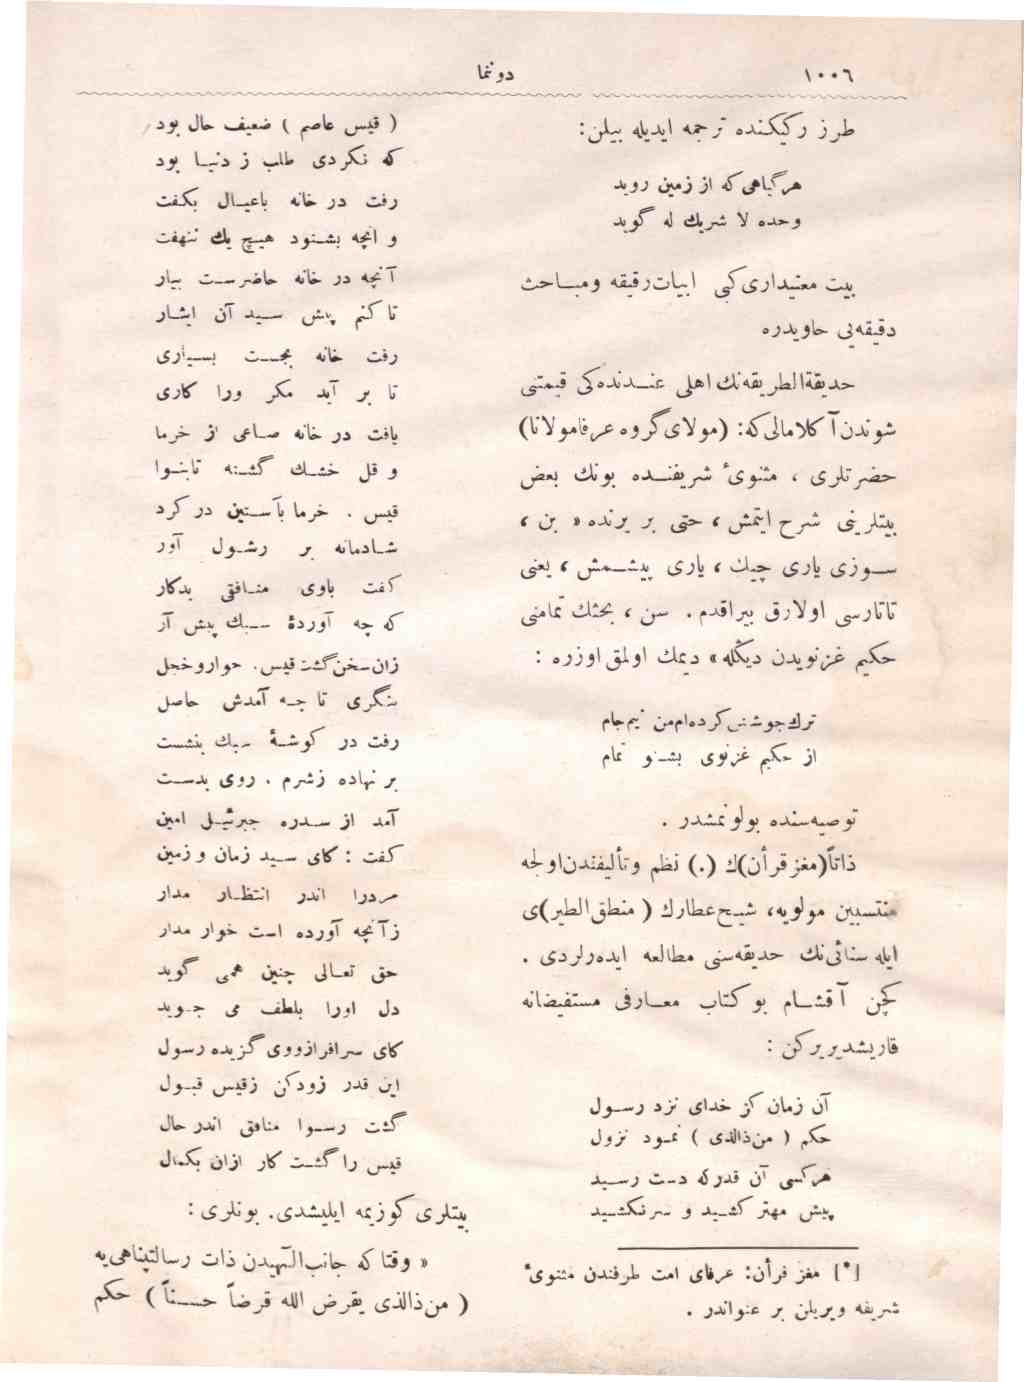 ١٠٠٦
دوننما
طرز ركيكنده ترجمه ايديله بيلن:
هرگياهى كه از زمين رويد
وحده لا شريك له گويد
بيت معتبدارى كبى ابيات رقيقه ومباحث
دقيقه‌يى حاويدره
حديقةالطريقه‌نك اهلى عنـدنده‌كى قيمتنى
شوندن آكلامالى كه: (مولاى گروه عرفا مولانا)
حضرتلرى ، مثنوىٔ شريفنـده بونك بعض
بيتلرينى شرح ايتمش ، حتى بر يرنده « بن ،
سـوزى يارى چيك ، يارى پيشـمش ، يعنى
تاتارسى اولارق بيراقدم . سن ، بحثك تمامنى
حكيم غزنويدن ديكله » ديمك اولمق اوزره :
ترك جوشش كرده‌ام من نيم جام
از حكيم غزنوى بشنو تمام
توصيه‌سنده بولونمشدر .
ذاتاً (مغز قرأن)ك (.) نظم وتأليفندن اولجه
منتسبين مولويه، شيخ عطارك ( منطق الطير)ى
ايله سنائى‌نك حديقه‌سنى مطالعه ايده‌رلردى .
كچن آقشـام بو كتاب معـارفى مستفيضانه
قاريشديريركن :
آن زمان كز خداى نزد رسـول
حكم ( من ذالذى ) نمـود نزول
هركسى آن قدركه دست رسـيد
پيش مهتر كشـيد و سر نكشـيد
[*] مغز قرأن: عرفاى امت طرفندن مثنوىٔ
شريفه ويريلن بر عنواندر .
( قيس عاصم ) ضعيف حال بود
كه نكردى طلب ز دنيـا بود
رفت در خانه باعيـال بكفت
و انچه بشـنود هيـچ يك ننهفت
آنچه در خانه حاضرسـت بيار
تا كنم پيش سـيد آن ايثـار
رفت خانه بجسـت بسـيارى
تا بر آيد مكر ورا كارى
يافت در خانه صـاعى از خرما
و قل خشـك گشـته تابنـوا
قيس . خرما بآسـتين در كرد
شـادمانه بر رسـول آور
كفت باوى منـافقى بدكار
كه چه آوردهٔ سـبك پيش آر
زان سخن گشت قيس . خواروخجل
بنگرى تا چـه آمدش حاصل
رفت در كوشـهٔ سبك بنشست
بر نهاده زشرم . روى بدسـت
آمد از سـدره جبرئيـل امين
كفت : كاى سـيد زمان و زمين
مردرا اندر انتظـار مدار
زآنچه آورده است خوار مدار
حق تعـالى چنين همى گويد
دل اورا بلطف مى جـويد
كاى سرافراز ووى گزيده رسول
اين قدر زودكن زقيس قبـول
گشت رسـوا منافق اندر حال
قيس را گشـت كار ازان بكمال
بيتلرى كوزيمه ايليشدى. بونلرى :
« وقتا كه جانب الٓهيدن ذات رسالتپناهى‌يه
( من ذالذى يقرض الله قرضاً حسـناً ) حكم